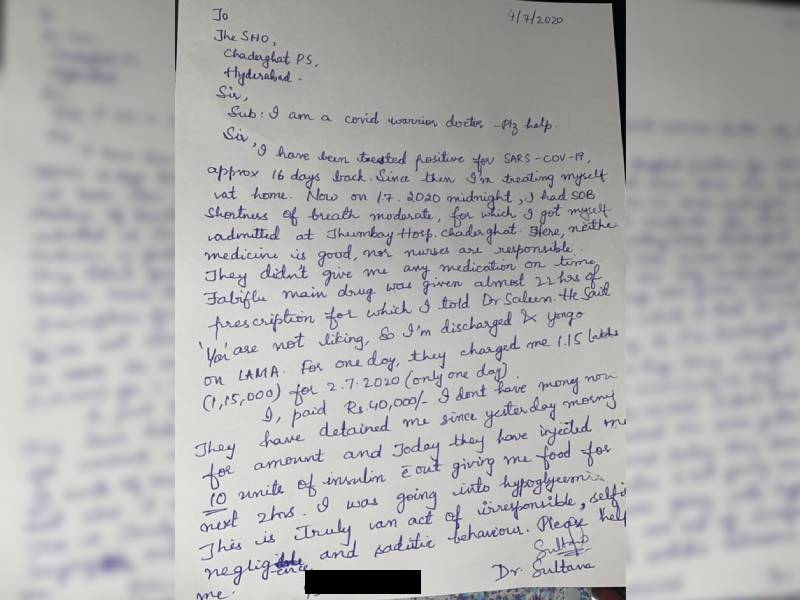 To
4/7/2020
The SHO,
Chaderghat P.S,
Hyderabad -
Sir,
Sub: I am a covid warrior doctor - Plz help.
Sir,
I have been treated positive for SARS-COV-19,
approx 16 days back. Since then I'm treating myself
at home. Now on 1.7.2020 midnight, I had SOB
Shortness of breath moderate, for which I got myself
admitted at Thumbay Hosp. chaderghat. Here, neithe
medicine is good, nor nurses are responsible.
They didn't give me any medication on time,
Fabiflu main drug was given almost 22 hrs of
prescription for which I told Dr Saleem. He Said
'You' are not liking, So I'm discharged & you go
on LAMA. For one day, they charged me 1.15 lakhs
(1,15,000) for 2.7.2020 (only one day).
I, paid Rs. 40,000/- I dont have money now
They have detained me since yesterday morng
for amount and Today they have injected me
10 units of insulin c̄out giving me food for
next 2hrs. I was going into hypoglycemia
This is Truly an act of irresponsible, selfis
negligence and saditic behaviour. Please help
me.
Dr. Sultana